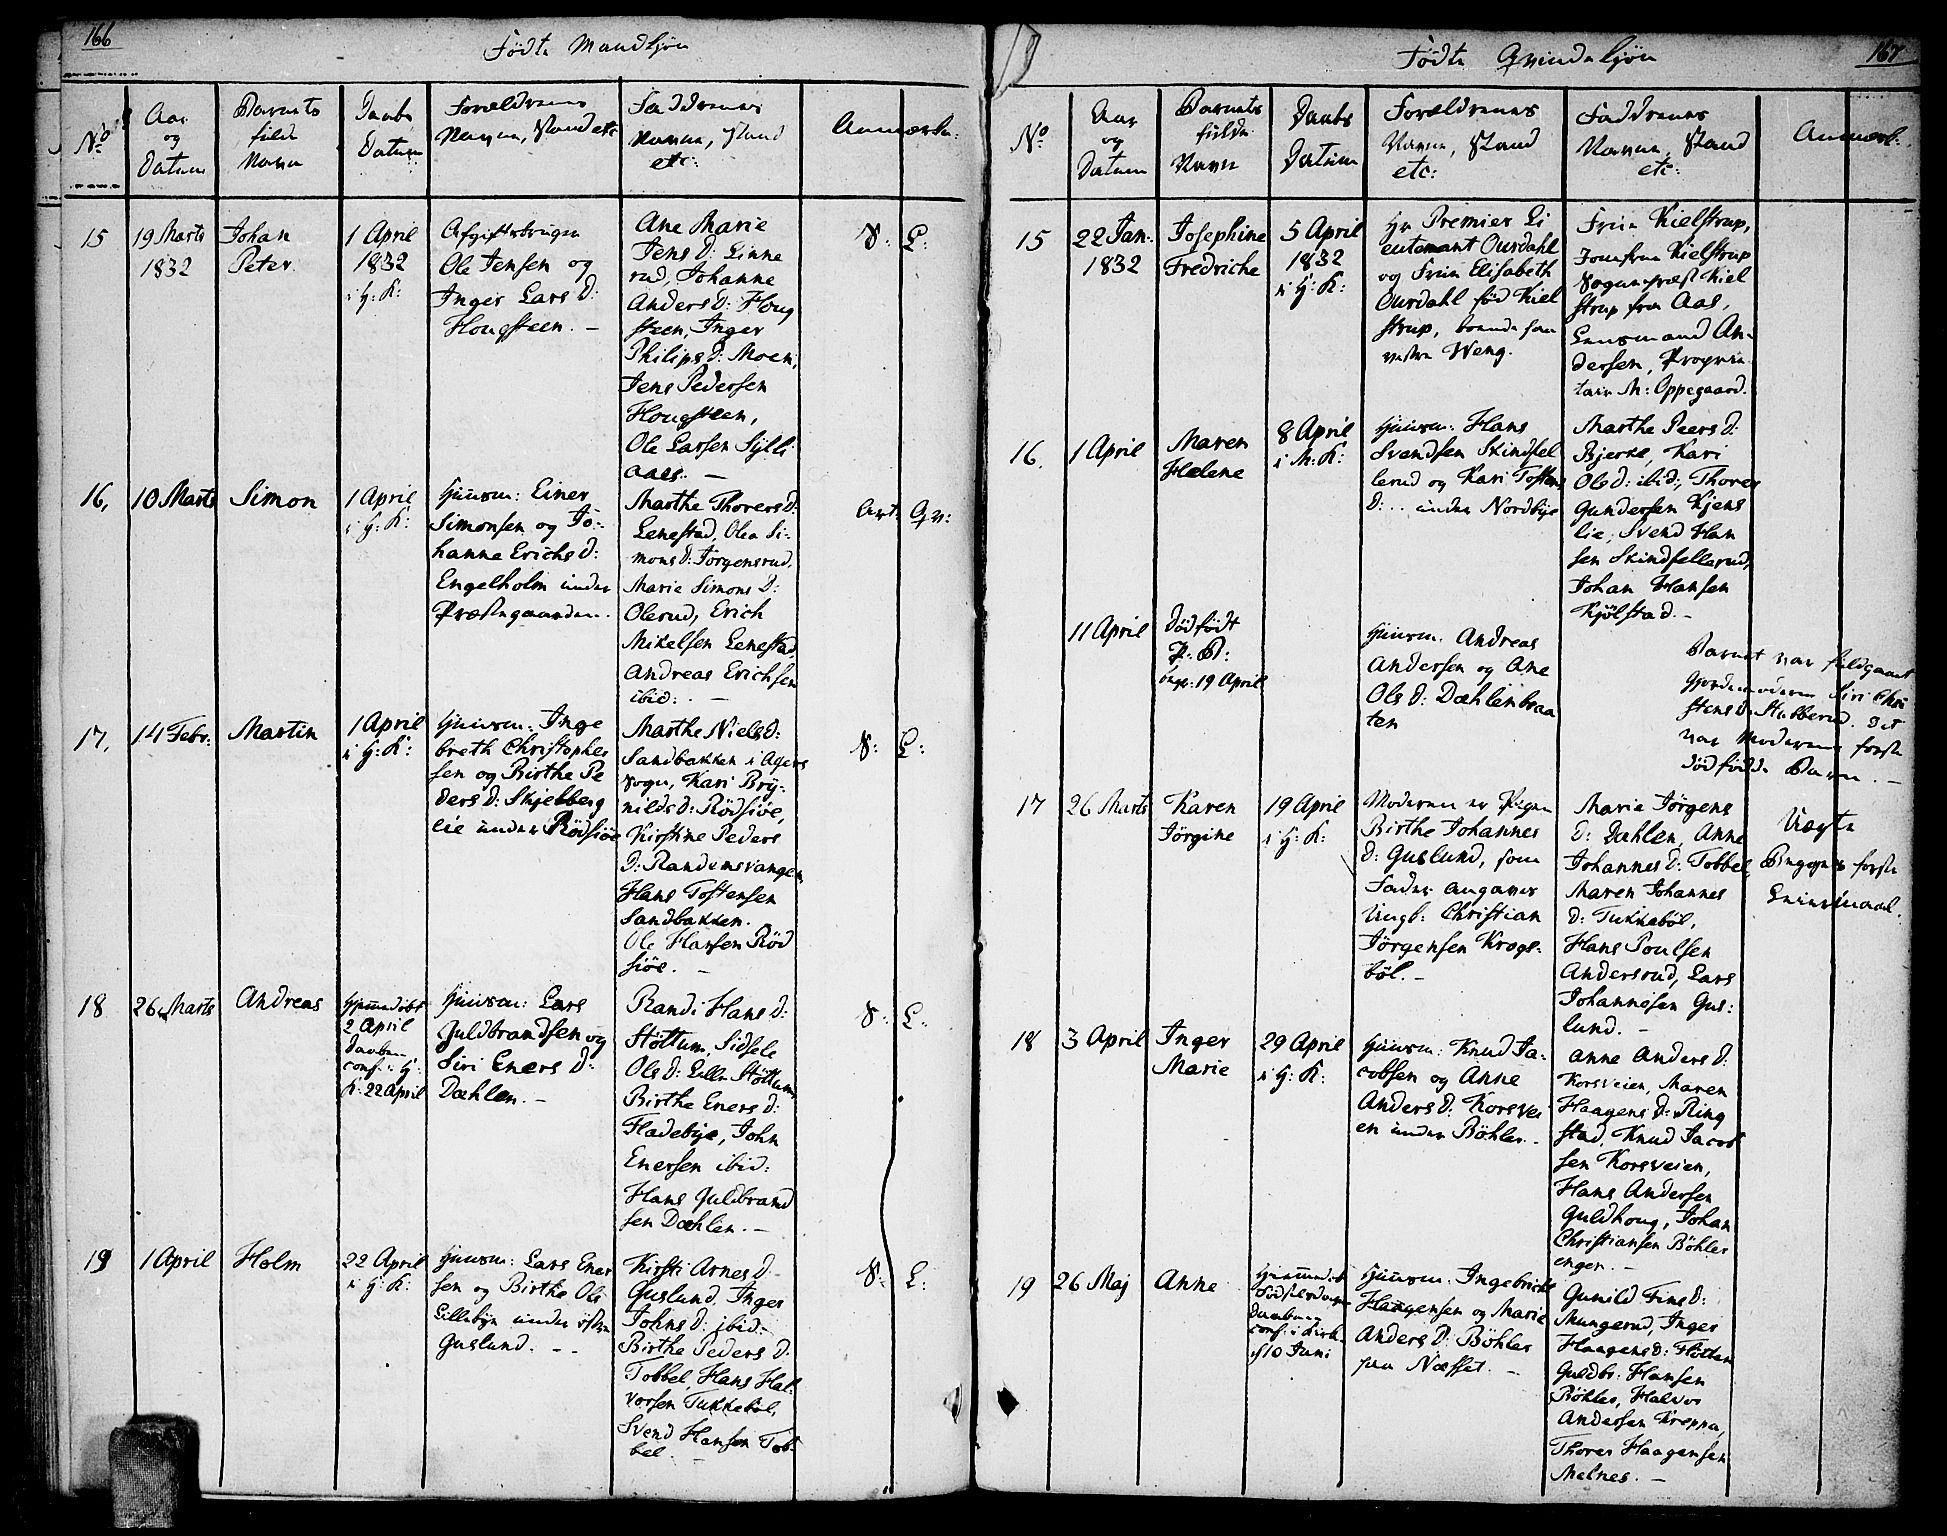 166
Födte Mandkjön
No
Aar
og
Datum
Barnets
fulde
Navn
Daabs
Datum
Forældrenes
Navne, Stand etc
Faddrenes
Navne, Stand
etc:
Anmærkn:
15
19 Marts
1832
Johan
Peter.
1 April
1832
i H: K:
Afgiftsbruger
Ole Jensen og
Inger Lars D:
Hougsteen. –
Ane Marie
Jens D: Linne
rud, Johanne
Anders D: Houg
steen, Inger
Philips D: Moen,
Jens Pedersen
Hougsteen,
Ole Larsen Sylli
aaes. –
V: L:
16,
10 Marts
Simon
1 April
i H: K:
Huusm: Einer
Simonsen og Jo-
hanne Erichs D:
Engelholm under
Præstegaarden.
Marthe Thorers D:
Lenestad, Olea Si-
mons D: Jörgensrud.
Marie Simons D:
Olerud, Erich
Mikelsen Lenestad,
Andreas Erichsen
ibid: –
Art: Qv:
17,
14 Febr:
Martin
1 April
i H: K:
Huusm: Inge
breth Christopher
sen og Birthe Pe
ders D: Skjebberg
lie under Rödsiöe
Marthe Niels D:
Sandbakken i Agers
Sogn, Kari Bry-
nilds D: Rödsiöe,
Kirstine Peders
D: Randemsvangen,
Hans Tostensen
Sandbakken.
Ole Hansen Röd
siöe. –
V: L:
18
26 Marts
Andreas
Hjemmedöbt
2 April
Daaben
conf: i H:
K: 22 April
Huusm: Lars
Guldbrandsen og
Siri Eners D:
Dæhlen. –
Randi Hans D:
Stöttum, Sidsele
Ols D: Lille Stöttum,
Birthe Eners D:
Fladebye, John
Enersen ibid:
Hans Guldbrand
sen Dæhlen. –
V: L:
19
1 April
Holm
22 April
i H: K:
Huusm: Lars Ener
sen og Birthe Ols
Lillebye under östre
Guslund. –
Kirsti Arnes D
Guslund, Inger
Johns D: ibid:
Birthe Peders D:
Tobbel, Hans Hal-
vorsen Tukkeböl,
Svend Hansen Tob-
bel. –
V: L:
167
Födte Qvindekjön
No
Aar
og
Datum
Barnets
fulde
Navn
Daabs
Datum
Forældrenes
Navne, Stand
etc:
Faddrenes
Navne, Stand
etc:
Anmærk:
15
22 Jan:
1832
Josephine
Fredriche
5 April
1832
i H: K:
Hr Premier Li
eutenant Ourdahl
og Frue Elisabeth
Ourdahl föd Kiel
strup, boende paa
vestre Weng.
Frue Kielstrup,
Jomfrue Kielstrup
Sognepræst Kiel
strup fra Aas,
Lensmand An-
dersen, Proprie-
tair M: Oppegaard.
16.
1 April
Maren
Helene
8 April
i M: K:
Huusm: Hans
Svendsen Skindfel
lerud og Kari Tostens
D: .. under Nordbye
Marthe Peers D:
Bjerke, Kari
Ols D: ibid:, Thorer
Gundersen Kjens
lie, Svend Han
sen Skindfellerud,
Johan Hansen
Kjölstad. –
11 April
Dödfödt
P: B:
begr: 19 April
Huusm: Andreas
Andersen og Ane
Ols D: Dæhlenbraa
ten
Barnet var fuldbaaret
Gjordemoderen Siri Chri
stens D: Stubberud. Det
var Moderens förste
dödfödte Barn. –
17
26 Marts
Karen
Jörgine
19 April
i H: K:
Moderen er Pigen
Birthe Johannes
D: Guslund, som
Fader angaves
Ungk: Christian
Jörgensen Krogs-
böl. –
Marie Jörgens
D: Dæhlen, Anne
Johannes D: Tobbel,
Maren Johannes
D: Tukkeböl,
Hans Poulsen
Andersrud, Lars
Johannesen Gus-
lund. –
Uægte
Begges förste
Leiermaal.
18
3 April
Inger
Marie
29 April
i H: K:
Huusm: Knud Ja-
cobsen og Anne
Anders D: Korsvei
en under Böhler.
Anne Anders D:
Korsveien, Maren
Haagens D: Ring
stad, Knud Jacob
sen Korsveien,
Hans Andersen
Guldhoug, Johan
Christiansen Böhler
engen. –
19
26 Maj
Anne
Daaben
conf: i Kirk.
10 Juni
Huusm: Ingebricht
Haagensen og Marie
Anders D: Böhler
paa Næsset. –
Gunild Fins D:
Mungerud, Inger
Haagens D: Hötten
Guldbr: Hansen
Böhler, Halvor
Andersen Kreppa,
Thorer Haagensen
Melnes. –